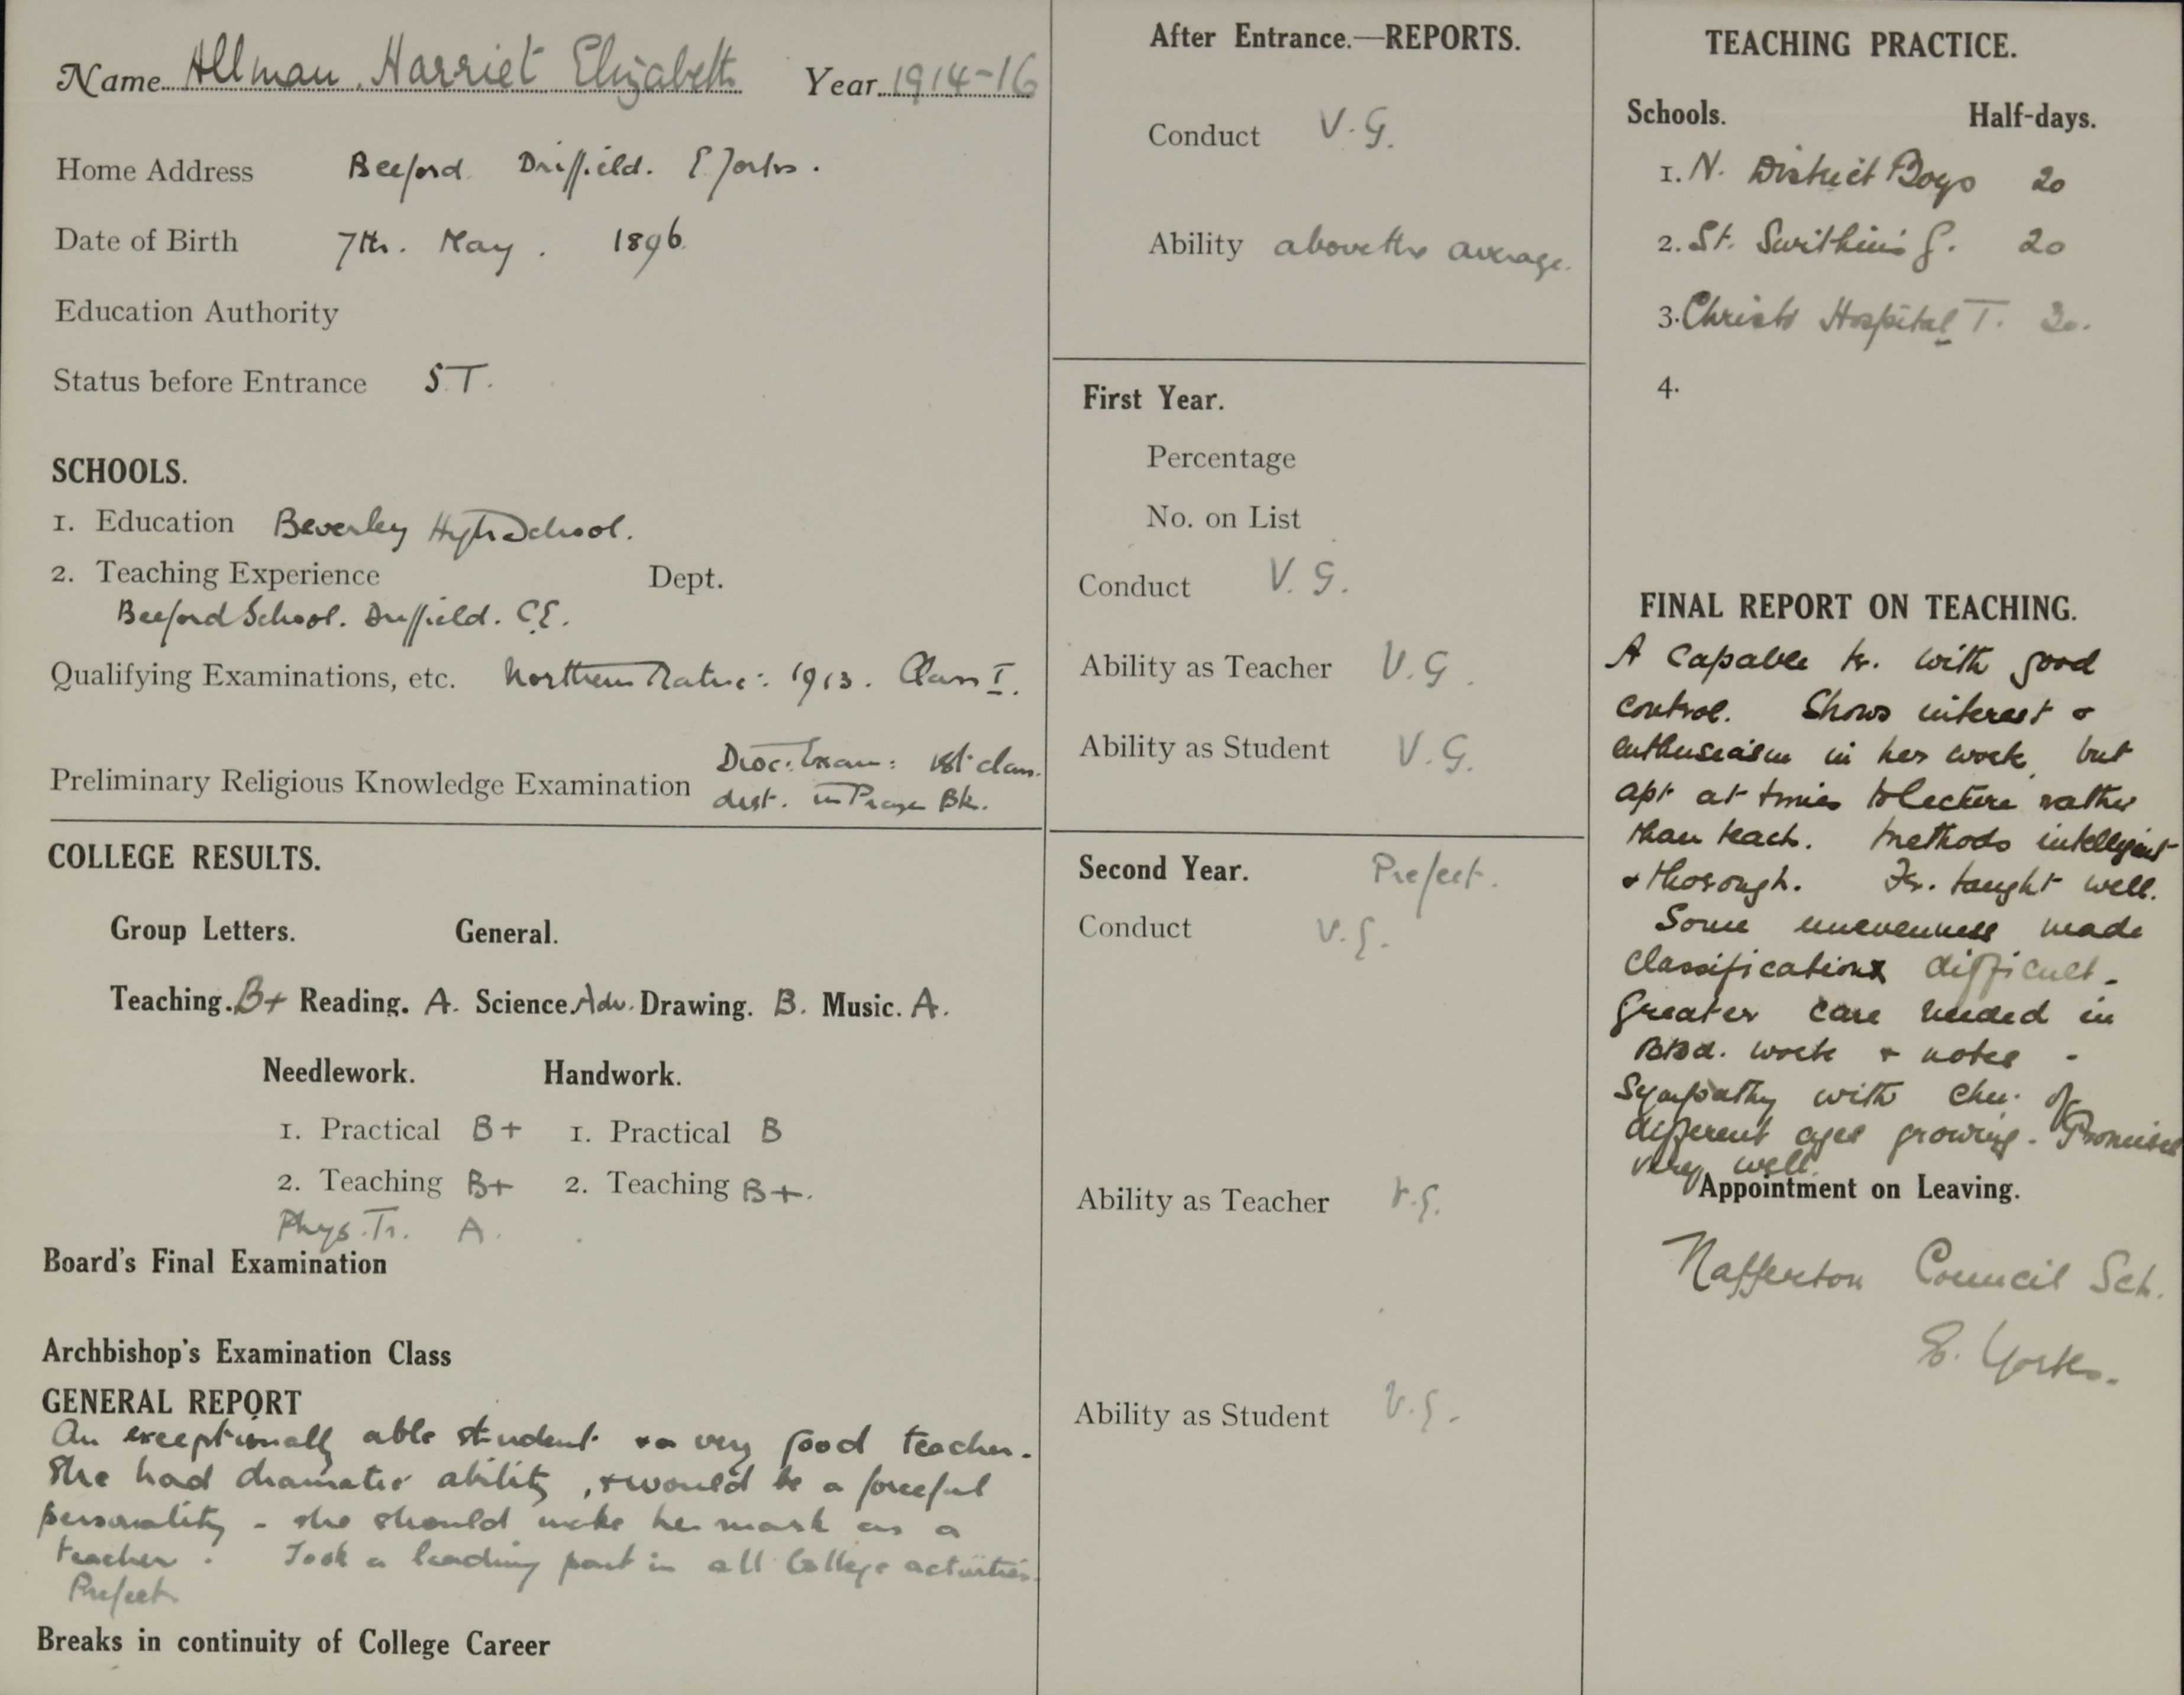 Name Allman, Harriet Elizabeth Year 1914-16
Home Address Beeford Driffield. E Yorks.
Date of Birth 7th. May. 1896
Education Authority
Status before Entrance S.T.
SCHOOLS.
1. Education Beverley High School.
2. Teaching Experience Dept.
Beeford School. Driffield. C.E.
Qualifying Examinations, etc. Northern Matric: 1913. Class I.
Preliminary Religious Knowledge Examination Dioc. Exam: 1st class.
dist. in Prayer Bk.
COLLEGE RESULTS.
Group Letters. General.
Teaching. B+ Reading. A. Science. Adv. Drawing. B. Music. A.
Needlework. Handwork.
1. Practical B+ 1. Practical B
2. Teaching B+ 2. Teaching B+.
Phys. Tr. A.
Board's Final Examination
Archbishop's Examination Class
GENERAL REPORT
An exceptionally able student & a very good teacher.
She had dramatic ability, & would be a forceful
personality - she should make her mark as a
teacher. Took a leading part in all College activities.
Prefect
Breaks in continuity of College Career
After Entrance.—REPORTS.
Conduct V.G.
Ability above the average.
First Year.
Percentage
No. on List
Conduct V.G.
Ability as Teacher V.G.
Ability as Student V.G.
Second Year. Prefect.
Conduct V.G.
Ability as Teacher V.G.
Ability as Student V.G.
TEACHING PRACTICE.
Schools. Half-days.
1. N. District Boys 20
2. St. Swithin's G. 20
3. Christs Hospital T. 30.
4.
FINAL REPORT ON TEACHING.
A capable tr. with good
control. Shows interest &
enthusiasm in her work, but
apt at times to lecture rather
than teach. Methods intelligent
& thorough. Fr. taught well.
Some unevenness made
classification difficult.
Greater care needed in
BBd. work & notes -
Sympathy with chn. of
different ages growing. Promises
very well.
Appointment on Leaving.
Nafferton Council Sch.
E. Yorks.